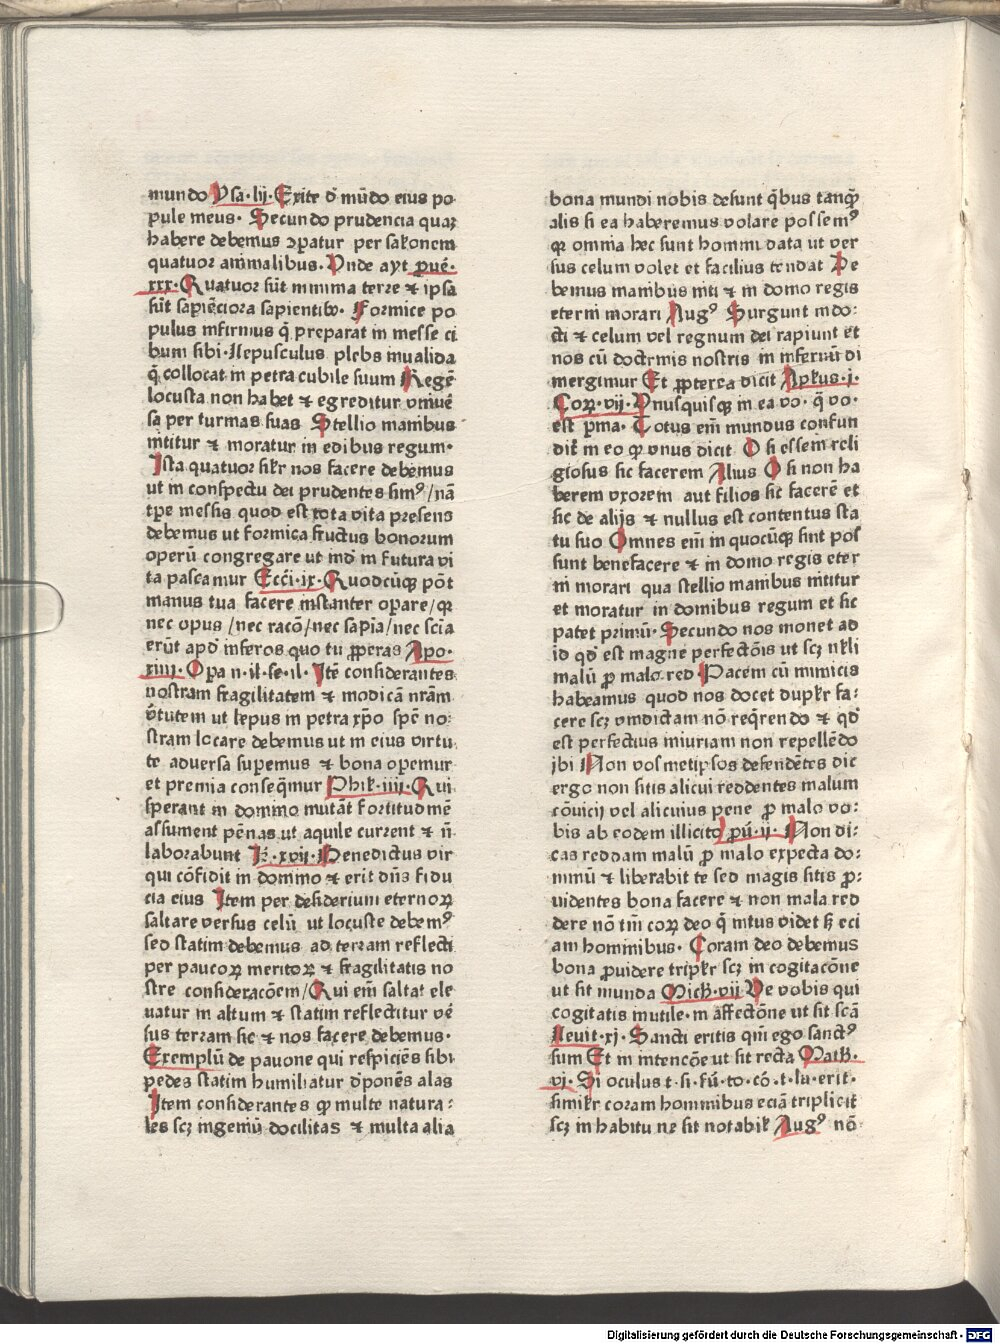 mundo Ysa·lij·Exite ď mūdo eius po
pule meus· Secundo prudencia quaꝝ
habere debemus ɔpatur per salonem
quatuor animalibus· Vnde ayt ꝓué·
xxx·Quatuor sūt minima terre ⁊ ipsa
sūt sapiēciora sapientibꝰ· Formice po
pulus infirmus q̄ preparat in messe ci
bum sibi·Lepusculus plebs inualida
q̄ collocat in petra cubile suum Regē
locusta non habet ⁊ egreditur vniuē
sa per turmas suas Stellio manibus
nititur ⁊ moratur in edibus regum·
Ista quatuor silr nos facere debemus
ut in conspectu dei prudentes simꝰ/nā
tꝑe messis quod est tota vita presens
debemus ut formica fructus bonorum
operū congregare ut inď in futura vi
ta pascamur Ecci·ix·Quodcūqꝫ pōt
manus tua facere instanter oꝑare/qꝛ
nec opus/nec racō/nec sapia/nec scīa
erūt apď inferos quo tu ꝓperas Apo·
xiiij·Oꝑa n·il·se·il·Itē considerantes
nostram fragilitatem ⁊ modicā nr̄am
v̄tutem ut lepus in petra xp̄o spē no:
stram locare debemus ut in eius virtu
te aduersa supemus ⁊ bona opemur
et premia conseq̄mur Phil·iiij·Qui
sperant in dommo mutāt fortitudinē
assument pēnas ut aquile current ⁊ n̄
laborabunt Jr·xvij·Benedictus vir
qui cōfidit in dommo ⁊ erit dn̄s fidu
cia eius Item per desiderium eternoꝝ
saltare versus celū ut locuste debemꝰ
sed statim debemus ad terram reflecti
per paucoꝝ meritoꝝ ⁊ fragilitatis no
stre consideracōem/Qui em̄ saltat ele
uatur in altum ⁊ statim reflectitur vē
sus terram sic ⁊ nos facere debemus·
Exemplū de pauone qui respiciēs sibi
pedes statim humiliatur dꝑonēs alas
Item considerantes ꝙ multe natura:
les scꝫ ingeniū docilitas ⁊ multa alia
bona mundi nobis desunt q̄bus tanq̄ꝫ
alis si ea haberemus volare possemꝰ
qꝛ omnia hec sunt homini data ut ver
sus celum volet et facilius tendat De
bemus manibus niti ⁊ in domo regis
eterni morari Augꝰ Surgunt indo:
cti ⁊ celum vel regnum dei rapiunt et
nos cū doctrinis nostris in infernū di
mergimur Et ꝓpterea dicit Aplꝰus·j·
Coꝝ·vij·Vnusquisqꝫ in ea vo·q̄ vo·
est ꝑma·Totus em̄ mundus confun
dit̄ in eo ꝙ vnus dicit O si essem reli
giosus sic facerem Alius O si non ha
berem vxorem aut filios sic facerē et
sic de alijs ⁊ nullus est contentus sta
tu suo Omnes em̄ in quocūqꝫ sint pos
sunt benefacere ⁊ in domo regis eter
ni morari qua stellio manibus nititur
et moratur in domibus regum et sic
patet primū·Secundo nos monet ad
id qď est magne perfectōis ut scꝫ n̄kli
malū ꝓ malo red·Pacem cū inimicis
habeamus quod nos docet duplr fa:
cere scꝫ vindictam nō req̄rendo ⁊ qď
est perfectius iniuriam non repellēdo
ibi Non vosmetipsos defendētes dic
ergo non sitis alicui reddentes malum
cōuicij vel alicuius pene ꝓ malo vo:
bis ab eodem illicito ꝓū·ij·Non di:
cas reddam malū ꝓ malo expecta do:
minū ⁊ liberabit te sed magis sitis ꝓ:
uidentes bona facere ⁊ non mala red
dere nō tm̄ coꝝ deo q̄ intus videt sꝫ eci
am hominibus· Coram deo debemus
bona ꝓuidere triplr scꝫ in cogitacōne
ut sit munda Mich·vij Ve vobis qui
cogitatis inutile·in affectōne ut sit scā
Leuit·xj·Sancti eritis qm̄ ego sanctꝰ
sum Et in intencōe ut sit recta Math·
vj·Si oculus t·si·fū·to·cō·t·lu·erit·
similr coram hominibus eciā triplicit̄
scꝫ in habitu ne sit notabil̄ Augꝰ nō
Digitalisierung gefördert durch die Deutsche Forschungsgemeinschaft · DFG